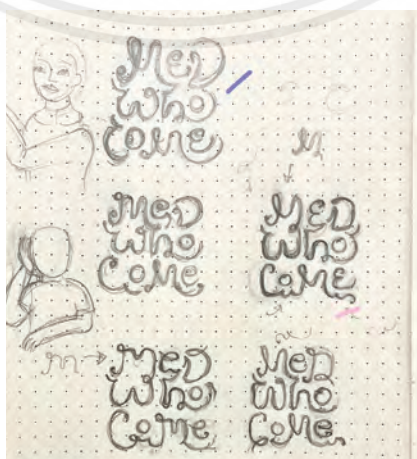 MED
WHO
COME
M
MED
WHO
COME
MED
WHO
COME
m
MED
WHO
COME
MED
WHO
COME